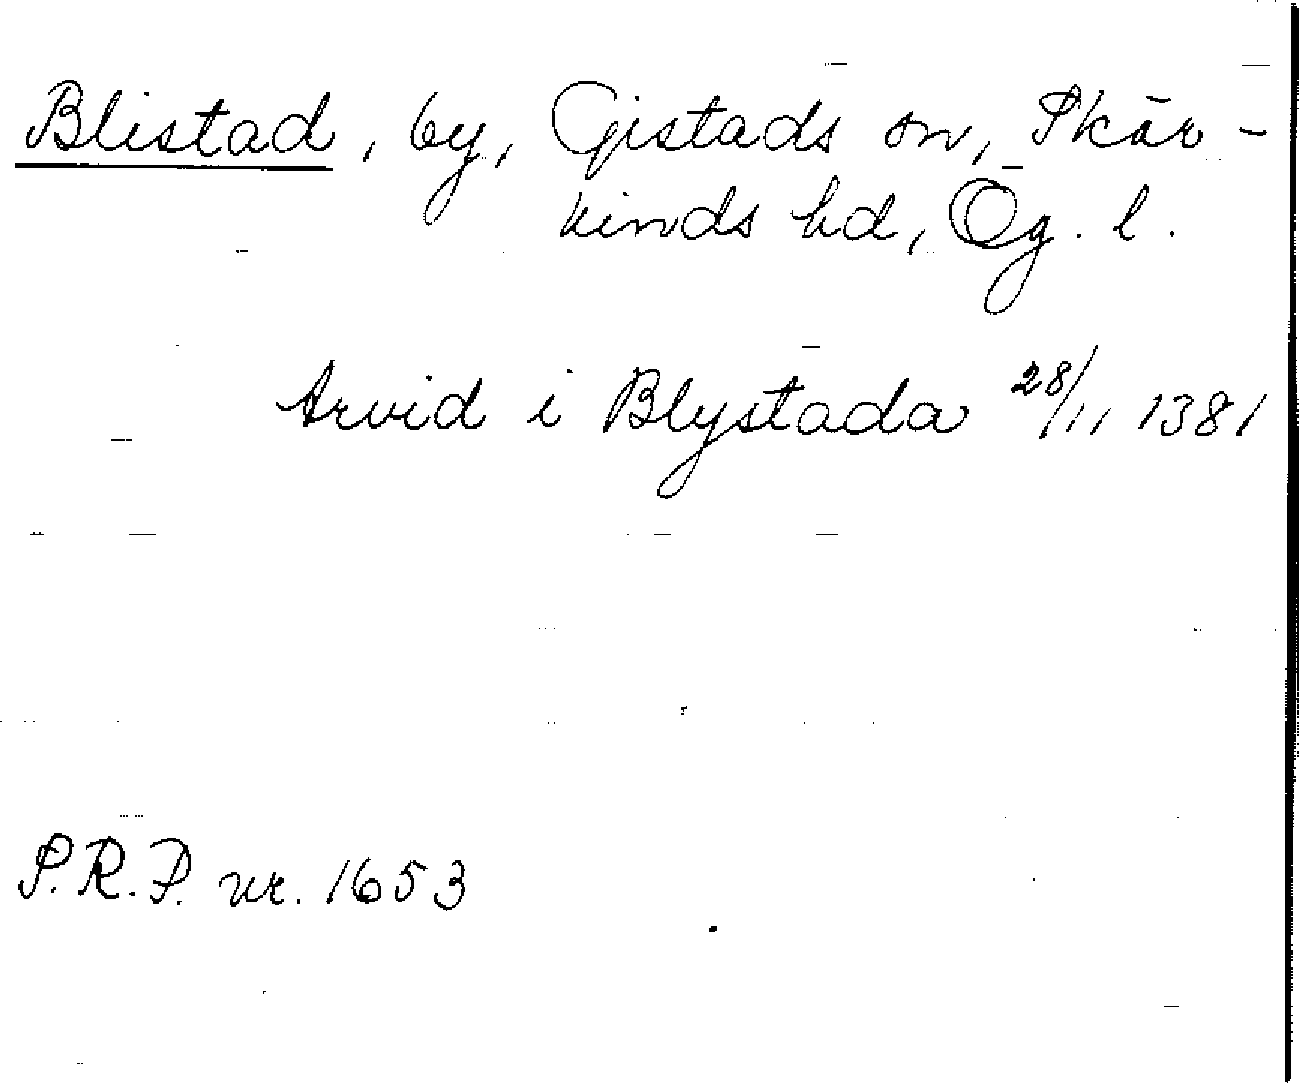 Blistad, by, Gistads sn, Skär-
kinds hd, Ög. l.
Arvid i Blystada 28/11 1381
S.R.P. nr. 1653